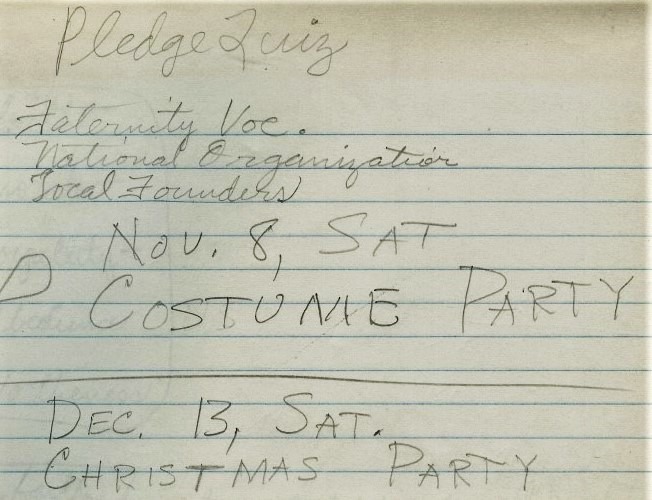 Pledge Quiz
Faternity Voc.
National Organization
Local Founders
Nov. 8, SAT
COSTUME PARTY
DEC. 13, SAT.
CHRISTMAS PARTY